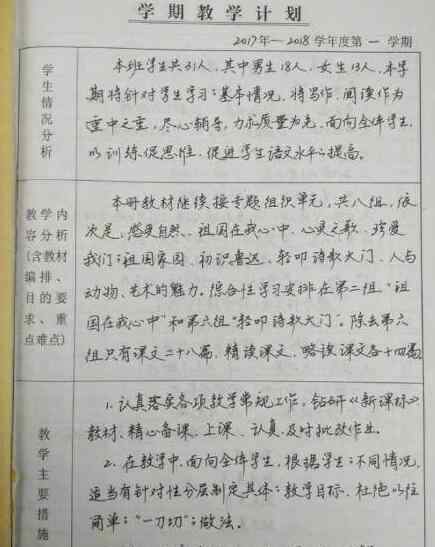 学期教学计划
2017年—2018学年度第一学期
学生情况分析
本班学生共31人，其中男生18人，女生13人，本学
期将针对学生学习的基本情况，将写作、阅读作为
重中之重，尽心辅导，力求质量为先，面向全体学生，
以训练促思维，促进学生语文水平的提高。
教学内
容分析
(含教材
编排、
目的要
求、重
点难点)
本册教材继续按专题组织单元，共八组，依
次是，感受自然、祖国在我心中、心灵之歌、珍爱
我们的祖国家园、初识鲁迅、轻叩诗歌大门、人与
动物、艺术的魅力。综合性学习安排在第二组"祖
国在我心中"和第六组"轻叩诗歌大门"。除去第六
组只有课文二十八篇，精读课文、略读课文各十四篇
教学主要措施
1、认真落实各项教学常规工作，钻研《新课标》
教材、精心备课、上课、认真、及时批改作业。
2、在教学中，面向全体学生，根据学生的不同情况，
适当有针对性分层制定具体的教学目标，杜绝以往
简单的"一刀切"的做法。